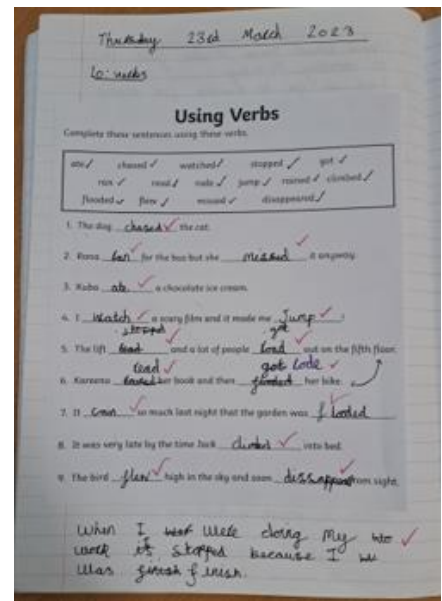 Thursday 23rd March 2023
Lo: verbs
Using Verbs
Complete these sentences using these verbs.
ate chased watched stopped got
ran read rode jump rained climbed
flooded flew missed disappeared
1. The dog chased the cat.
2. Rana ran for the bus but she missed it anyway.
3. Kuba ate a chocolate ice cream.
4. I watch a scary film and it made me Jump.
stopped got
5. The lift and a lot of people out on the fifth floor.
read got rode
6. Kareena her book and then her bike.
7. It so much last night that the garden was flooded
8. It was very late by the time Jack climbed into bed.
9. The bird flew high in the sky and soon from sight.
When I were doing my
work it stopped because I
was finish finish.